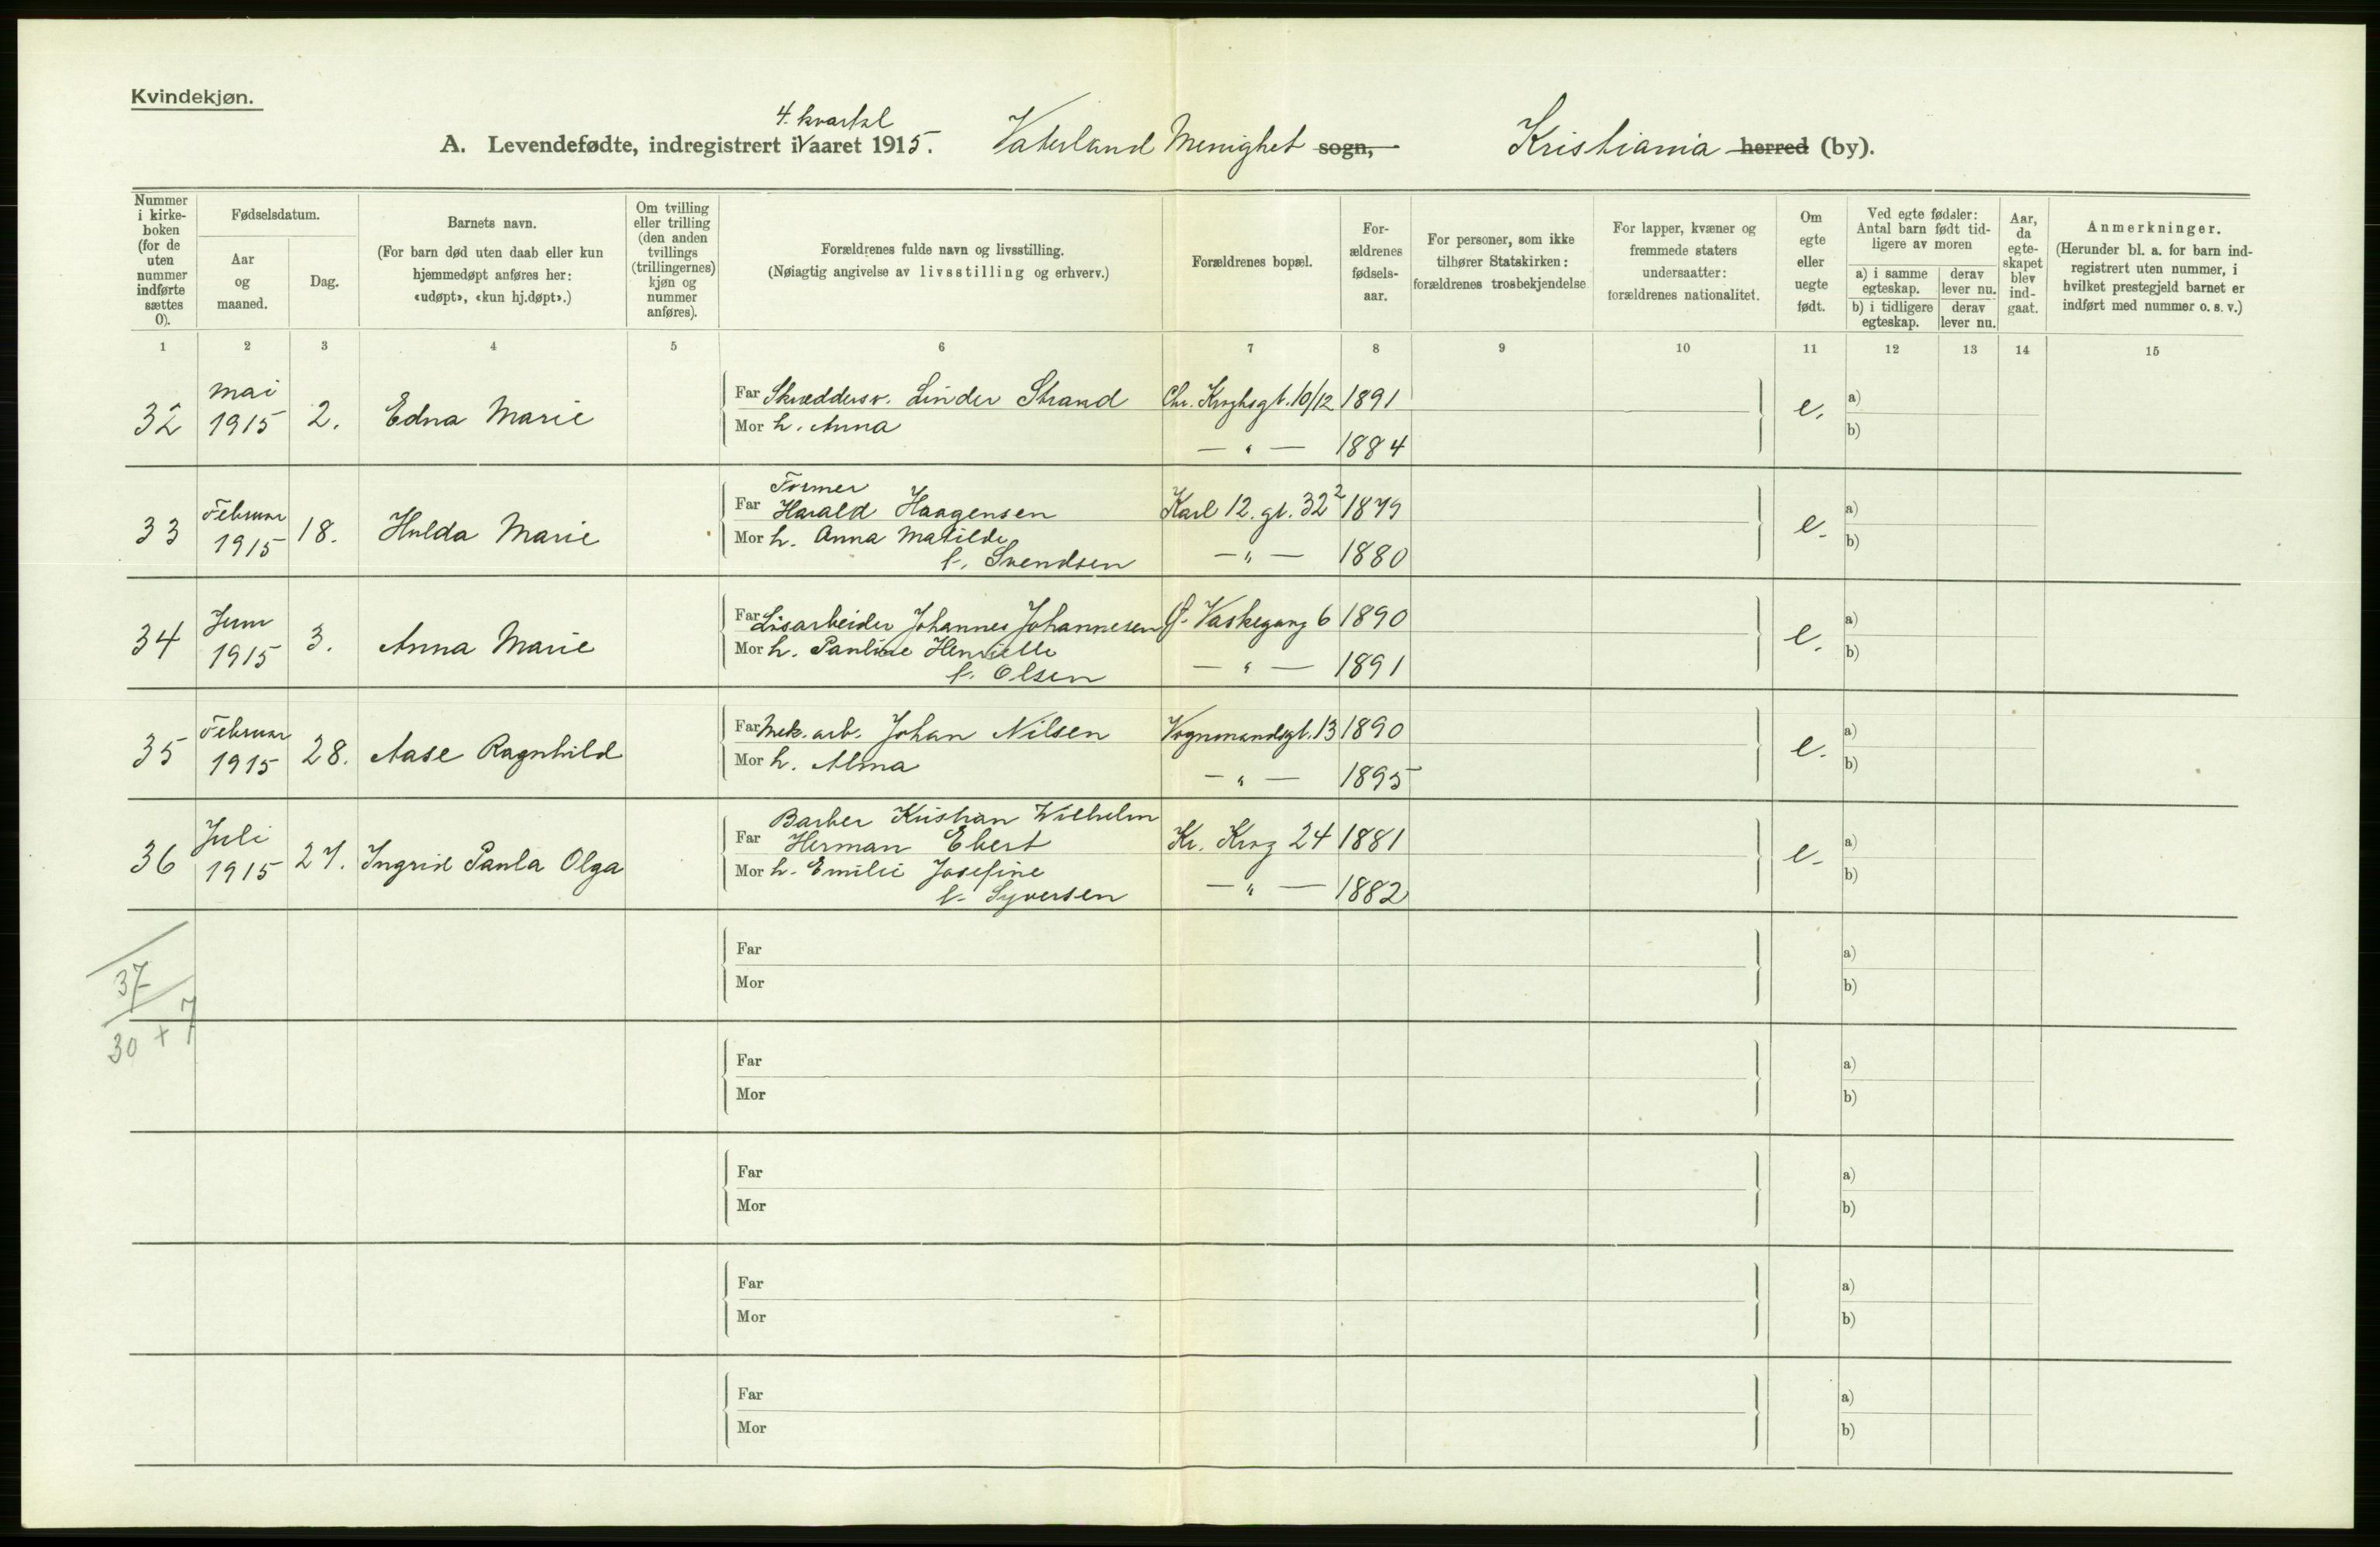 Kvindekjøn.
4. kvartal
A. Levendefødte, indregistrert i aaret 1915. Vaterland Menighet sogn, Kristiania herred (by).
Nummer i kirke-boken (for de uten nummer indførte sættes 0).
Fødselsdatum.
Aar og maaned.
Dag.
Barnets navn.
(For barn død uten daab eller kun hjemmedøpt anføres her: «udøpt», «kun hj.døpt».)
Om tvilling eller trilling (den anden tvillings (trillingernes) kjøn og nummer anføres).
Forældrenes fulde navn og livsstilling.
(Nøiagtig angivelse av livsstilling og erhverv.)
Forældrenes bopæl.
For-ældrenes fødsels-aar.
For personer, som ikke tilhører Statskirken: forældrenes trosbekjendelse
For lapper, kvæner og fremmede staters undersaatter: forældrenes nationalitet.
Om egte eller uegte født.
Ved egte fødsler: Antal barn født tid-ligere av moren
a) i samme egteskap.
derav lever nu.
b) i tidligere egteskap.
derav lever nu.
Aar, da egte-skapet blev ind-gaat.
Anmerkninger.
(Herunder bl. a. for barn ind-registrert uten nummer, i hvilket prestegjeld barnet er indført med nummer o. s. v.)
1 2 3 4 5 6 7 8 9 10 11 12 13 14 15
32 Mai 1915 2. Edna Marie Far Skræddersv. Linder Strand Chr. Kroghsgt. 10/12 1891 e. a)
Mor h. Anna — " — 1884 b)
33 Februar 1915 18. Hulda Marie Far Former Harald Haagensen Karl 12. gt. 32² 1879 e. a)
Mor h. Anna Matilde f. Svendsen — " — 1880 b)
34 Juni 1915 3. Anna Marie Far Løsarbeider Johannes Johannesen Ø. Vaskegang 6 1890 e. a)
Mor h. Pauline f. Olsen — " — 1891 b)
35 Februar 1915 28. Aase Ragnhild Far Mek. arb. Johan Nilsen Vognmandsgt. 13 1890 e. a)
Mor h. Alma — " — 1895 b)
36 Juli 1915 27. Ingrid Paula Olga Far Barber Kristian Wilhelm Herman Ebert Kr. Krog 24 1881 e. a)
Mor h. Emilie Josefine f. Syversen — " — 1882 b)
Far a)
37
Mor b)
30 + 7
Far a)
Mor b)
Far a)
Mor b)
Far a)
Mor b)
Far a)
Mor b)